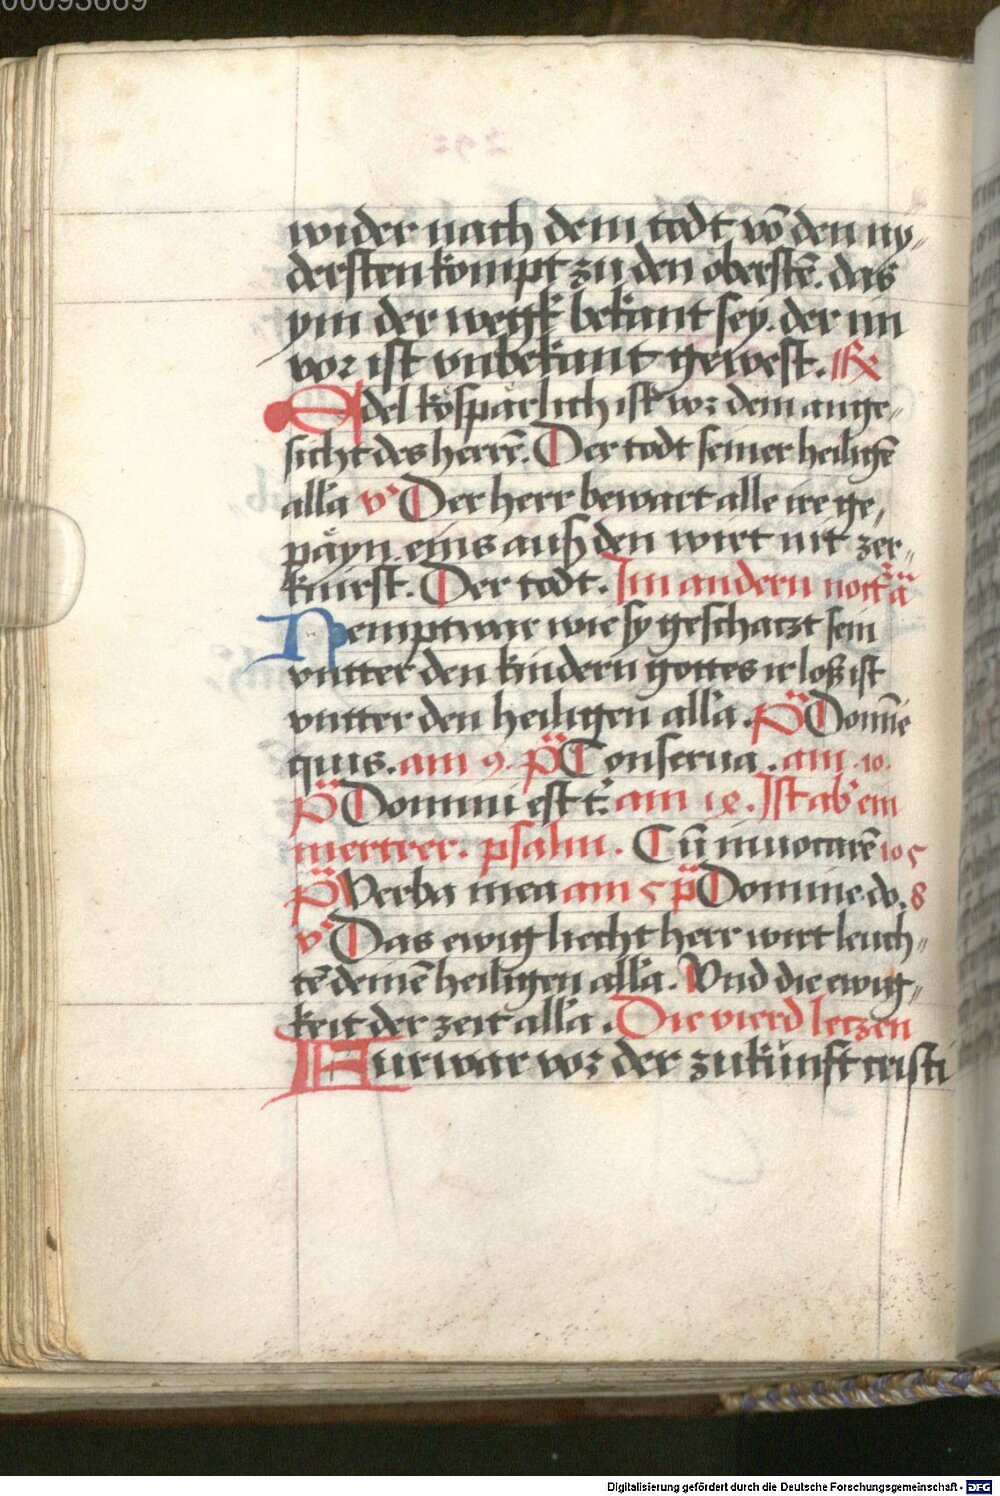 00093669
wider nach dem todt vō den ny„
dersten kompt zu den oberstē. das
ym der wegk bekant sey. der im
vor ist vnbekant gewest. R
Edel kospärlich ist vor dem ange„
sicht des herrē. Der todt seiner heiligē
alla v Der herr bewart alle ire ge„
päyn eins auß den wirt nit zer„
knirst. Der todt. Im andern nott̄a
Nempt war wie sy geschaczt sein
vntter den kindern gottes ir loß ist
vntter den heiligen alla. P̈ Domīe
quis. am 9. p̈ Conserua. am 10.
P̈ Domini est t. am 18. Ist ab' ein
mertrer. psalm. Cū inuocarē 105
P̈ Verba mea am 5 p̈ Domine do. 8
v Das ewig liecht herr wirt leuch„
tē deinē heiligen alla. Vnd die ewig„
keit der zeit alla. Die vierd leczen
Furwar vor der zukunft cristi
Digitalisierung gefördert durch die Deutsche Forschungsgemeinschaft - DFG